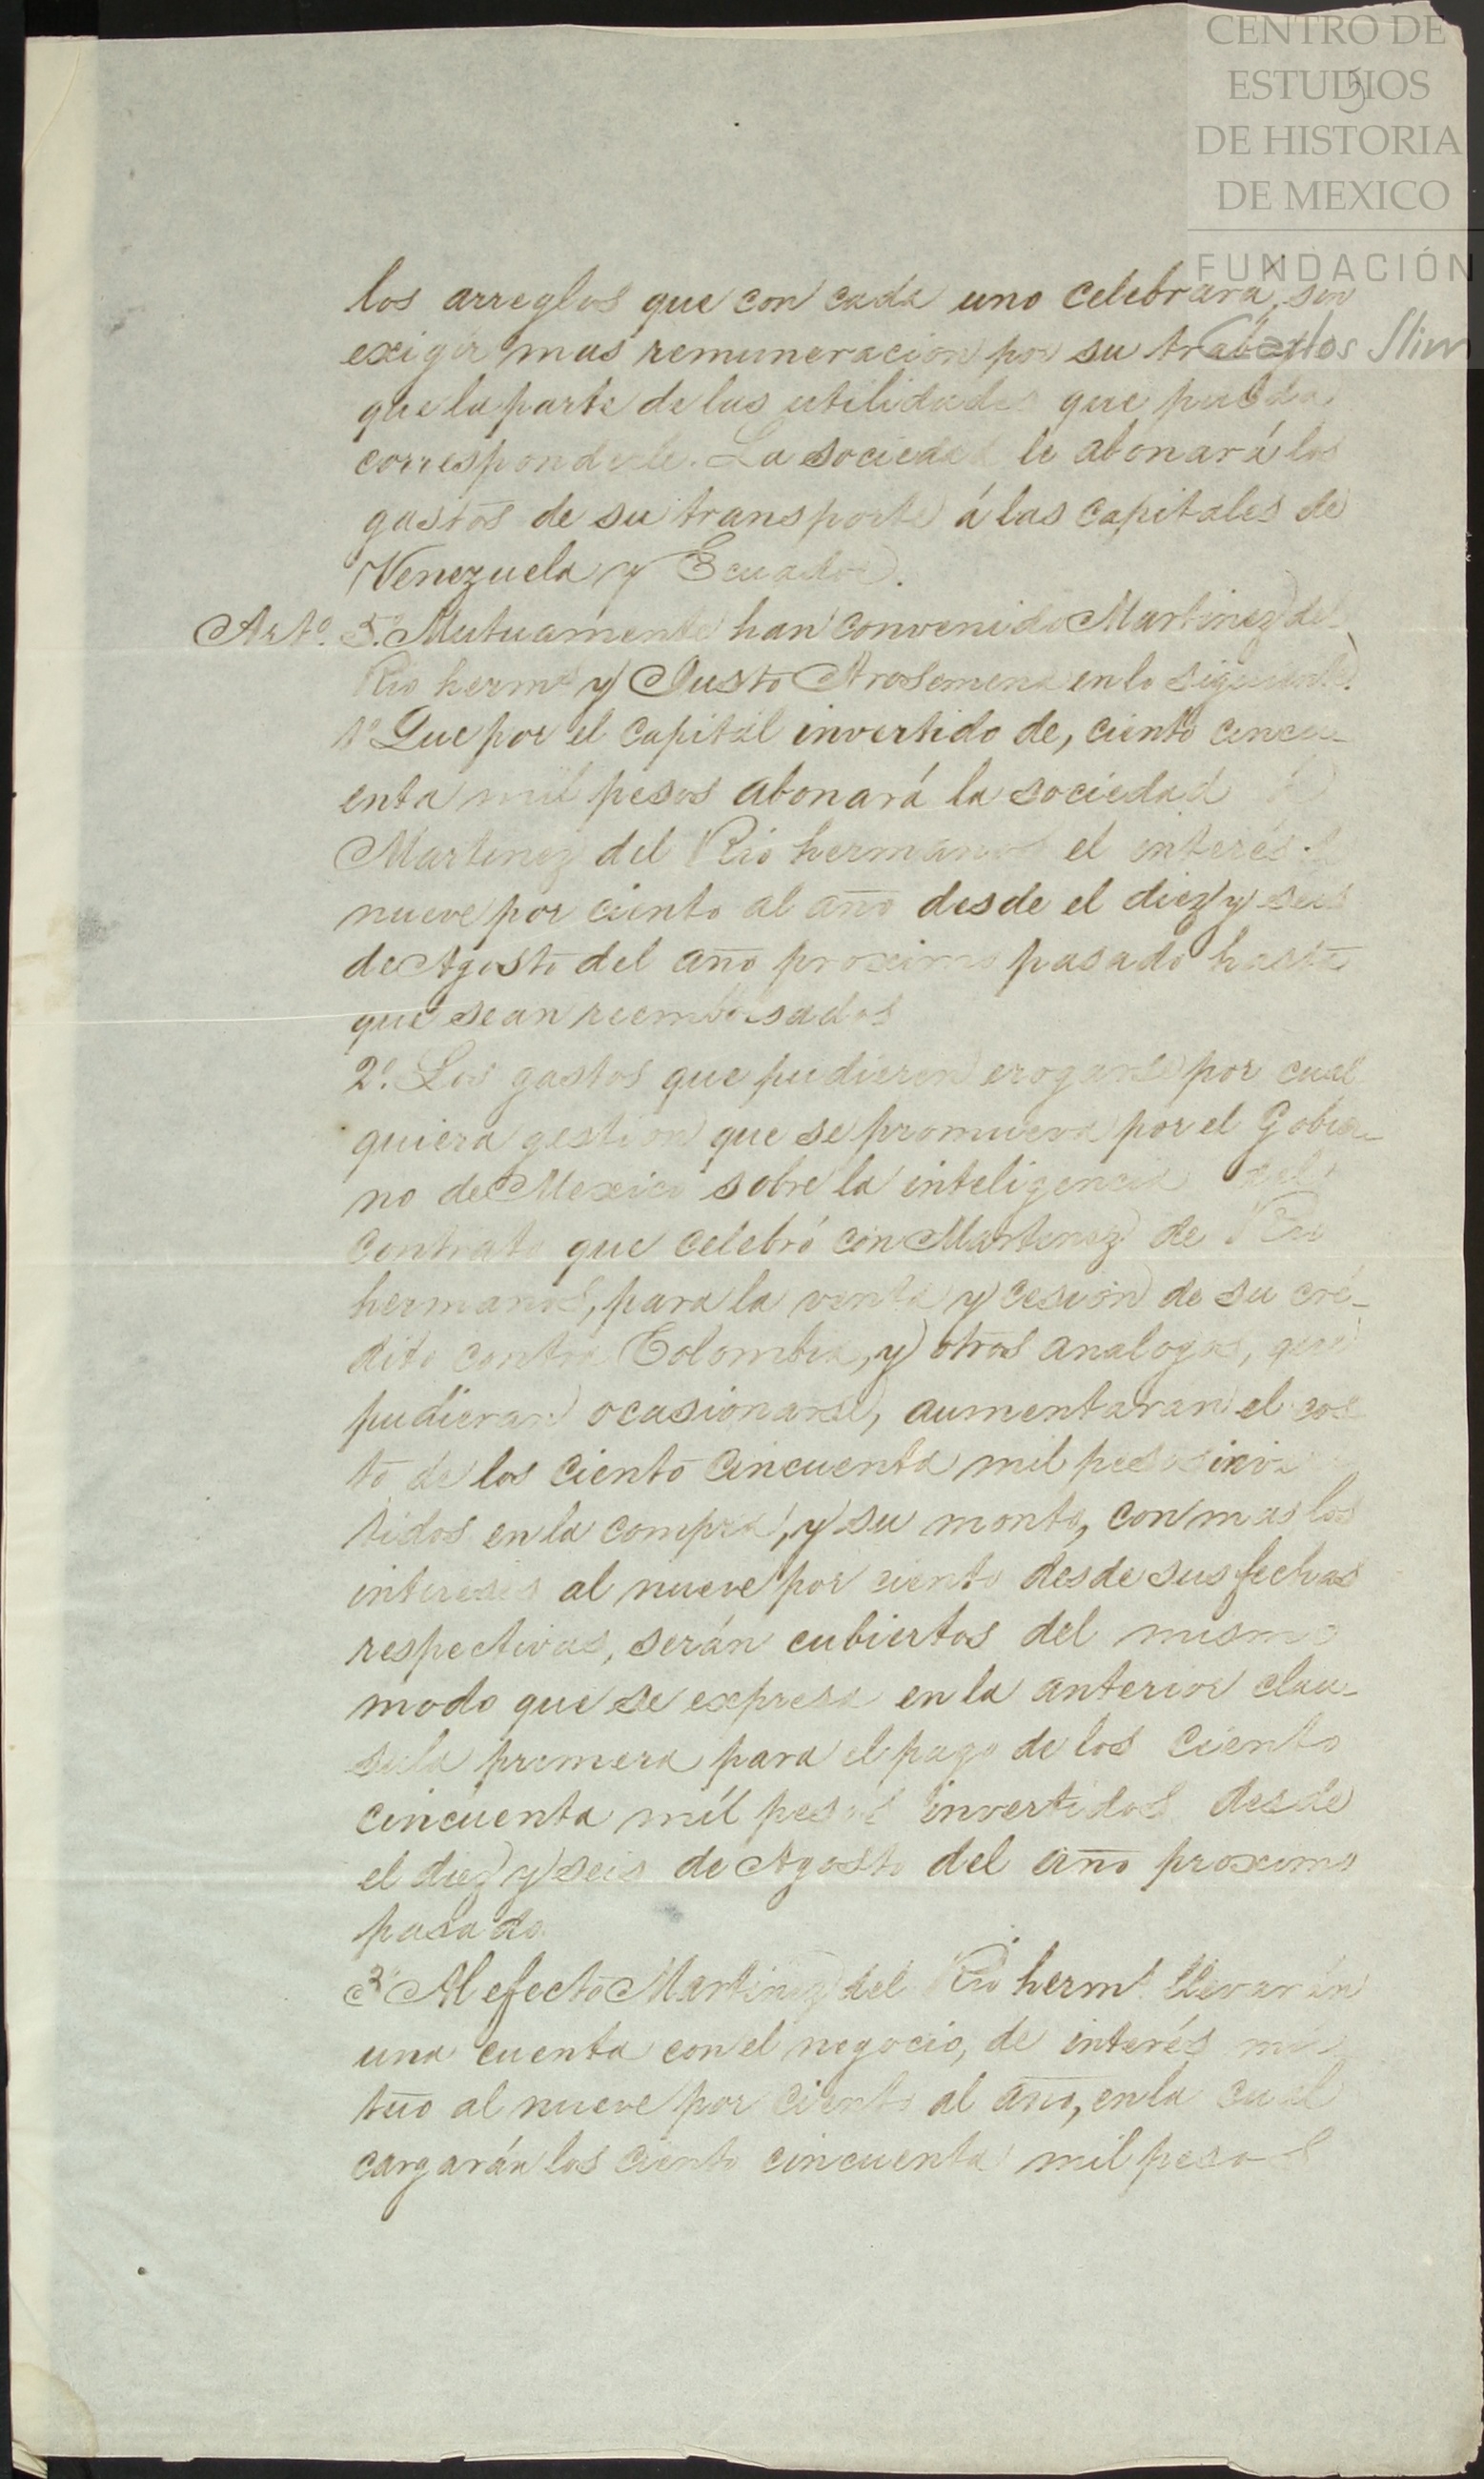 CENTRO DE
ESTUDIOS
DE HISTORIA
DE MEXICO
FUNDACIÓN
Carlos Slim
5
los arreglos que con cada uno celebrara, sin
exigir mas remuneracion por su trabajo
que la parte de las utilidades que pueda
corresponderle. La sociedad le abonará los
gastos de su transporte á las Capitales de
Venezuela y Ecuador.
Arto. 5º. Mutuamente han convenido Martinez del
Rio hermˢ y Justo Arosemena en lo siguiente.
1º Que por el Capitál invertido de, ciento cincu-
enta mil pesos abonará la sociedad á
Martinez del Rio hermanos el interés
nueve por ciento al año desde el diez y seis
de Agosto del año proximo pasado hasta
que sean reembolsados
2º. Los gastos que pudieren erogarse por cual
quiera gestion que se promueva por el Gobier-
no de Mexico sobre la inteligencia del
Contrato que celebró con Martinez de Rio
hermanos, para la venta y cesion de su cré-
dito contra Colombia, y otros analogos, que
pudieran ocasionarse, aumentaran el cos
to de los ciento cincuenta mil pesos inver
tidos en la compra, y su monto, con mas los
intereses al nueve por ciento desde sus fechas
respectivas, serán cubiertos del mismo
modo que se expresa en la anterior clau-
sula primera para el pago de los ciento
cincuenta mil pesos invertidos desde
el diez y seis de Agosto del año proximo
pasado.
3º Al efecto Martinez del Rio hermˢ. llevarán
una cuenta con el negocio, de interés mú
tuo al nueve por ciento al año, en la cual
cargarán los ciento cincuenta mil pesos